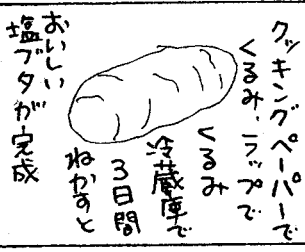 クッキングペーパーで
くるみ、ラップで
くるみ
冷蔵庫で
3日間
ねかすと
おいしい
塩ブタが完成